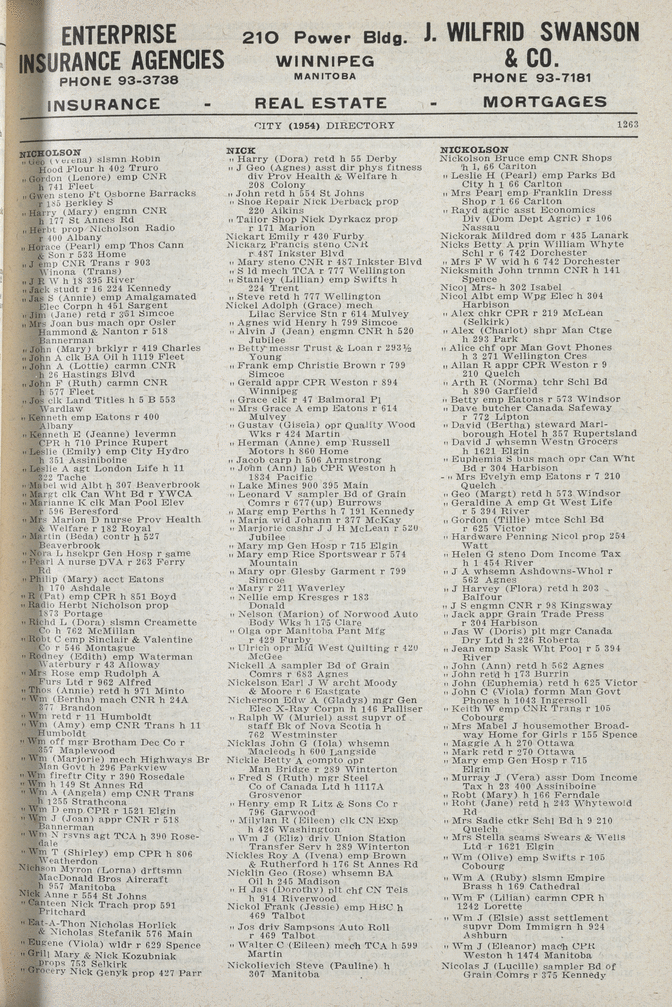 ENTERPRISE
INSURANCE AGENCIES
PHONE 93-3738
210 Power Bldg.
WINNIPEG
MANITOBA
J. WILFRID SWANSON
& CO.
PHONE 93-7181
INSURANCE - REAL ESTATE - MORTGAGES
CITY (1954) DIRECTORY 1263
NICHOLSON
" Geo (Verena) slsmn Robin
Hood Flour h 402 Truro
" Gordon (Lenore) emp CNR
h 741 Fleet
" Gwen steno Ft Osborne Barracks
r 185 Berkley S
" Harry (Mary) engmn CNR
h 177 St Annes Rd
" Herbt prop Nicholson Radio
r 400 Albany
" Horace (Pearl) emp Thos Cann
& Son r 533 Home
" J emp CNR Trans r 903
Winona (Trans)
" J R W h 18 395 River
" Jack studt r 16 224 Kennedy
" Jas S (Annie) emp Amalgamated
Elec Corpn h 451 Sargent
" Jim (Jane) retd r 351 Simcoe
" Mrs Joan bus mach opr Osler
Hammond & Nanton r 518
Bannerman
" John (Mary) brklyr r 419 Charles
" John A clk BA Oil h 1119 Fleet
" John A (Lottie) carmn CNR
h 26 Hastings Blvd
" John F (Ruth) carmn CNR
h 577 Fleet
" Jos clk Land Titles h 5 B 553
Wardlaw
" Kenneth emp Eatons r 400
Albany
" Kenneth E (Jeanne) levermn
CPR h 710 Prince Rupert
" Leslie (Emily) emp City Hydro
h 351 Assiniboine
" Leslie A agt London Life h 11
322 Tache
" Mabel wid Albt h 307 Beaverbrook
" Margt clk Can Wht Bd r YWCA
" Marianne K clk Man Pool Elev
r 596 Beresford
" Mrs Marion D nurse Prov Health
& Welfare r 182 Royal
" Martin (Beda) contr h 527
Beaverbrook
" Nora L hsekpr Gen Hosp r same
" Pearl A nurse DVA r 263 Ferry
Rd
" Philip (Mary) acct Eatons
h 170 Ashdale
" R (Pat) emp CPR h 851 Boyd
" Radio Herbt Nicholson prop
1873 Portage
" Richd L (Dora) slsmn Creamette
Co h 762 McMillan
" Robt C emp Sinclair & Valentine
Co r 546 Montague
" Rodney (Edith) emp Waterman
Waterbury r 43 Alloway
" Mrs Rose emp Rudolph A
Furs Ltd r 962 Alfred
" Thos (Annie) retd h 971 Minto
" Wm (Bertha) mach CNR h 24A
377 Brandon
" Wm retd r 11 Humboldt
" Wm (Amy) emp CNR Trans h 11
Humboldt
" Wm off mgr Brotham Dec Co r
357 Maplewood
" Wm (Marjorie) mech Highways Br
Man Govt h 296 Parkview
" Wm fireftr City r 390 Rosedale
" Wm h 149 St Annes Rd
" Wm A (Angela) emp CNR Trans
h 1255 Strathcona
" Wm D emp CPR r 1521 Elgin
" Wm J (Joan) appr CNR r 518
Bannerman
" Wm N rsvns agt TCA h 390 Rose-
dale
" Wm T (Shirley) emp CPR h 806
Weatherdon
Nichson Myron (Lorna) drftsmn
MacDonald Bros Aircraft
h 957 Manitoba
Nick Anne r 554 St Johns
" Canteen Nick Trach prop 591
Pritchard
" Eat-A-Thon Nicholas Horlick
& Nicholas Stefanik 576 Main
" Eugene (Viola) wldr r 629 Spence
" Grill Mary & Nick Kozubniak
props 753 Selkirk
" Grocery Nick Genyk prop 427 Parr
NICK
" Harry (Dora) retd h 55 Derby
" J Geo (Agnes) asst dir phys fitness
div Prov Health & Welfare h
208 Colony
" John retd h 554 St Johns
" Shoe Repair Nick Derback prop
220 Aikins
" Tailor Shop Nick Dyrkacz prop
r 171 Marion
Nickart Emily r 430 Furby
Nickarz Francis steno CNR
r 487 Inkster Blvd
" Mary steno CNR r 487 Inkster Blvd
" S ld mech TCA r 777 Wellington
" Stanley (Lillian) emp Swifts h
224 Trent
" Steve retd h 777 Wellington
Nickel Adolph (Grace) mech
Lilac Service Stn r 614 Mulvey
" Agnes wid Henry h 799 Simcoe
" Alvin J (Jean) engmn CNR h 520
Jubilee
" Betty messr Trust & Loan r 293½
Young
" Frank emp Christie Brown r 799
Simcoe
" Gerald appr CPR Weston r 894
Winnipeg
" Grace clk r 47 Balmoral Pl
" Mrs Grace A emp Eatons r 614
Mulvey
" Gustav (Gisela) opr Quality Wood
Wks r 424 Martin
" Herman (Anne) emp Russell
Motors h 860 Home
" Jacob carp h 506 Armstrong
" John (Ann) lab CPR Weston h
1834 Pacific
" Lake Mines 900 395 Main
" Leonard V sampler Bd of Grain
Comrs r 677(up) Burrows
" Marg emp Perths h 7 191 Kennedy
" Maria wid Johann r 377 McKay
" Marjorie cashr J J H McLean r 520
Jubilee
" Mary mp Gen Hosp r 715 Elgin
" Mary emp Rice Sportswear r 574
Mountain
" Mary opr Glesby Garment r 799
Simcoe
" Mary r 211 Waverley
" Nellie emp Kresges r 183
Donald
" Nelson (Marion) of Norwood Auto
Body Wks h 175 Clare
" Olga opr Manitoba Pant Mfg
r 429 Furby
" Ulrich opr Mid West Quilting r 420
McGee
Nickell A sampler Bd of Grain
Comrs r 683 Agnes
Nickelson Earl J W archt Moody
& Moore r 6 Eastgate
Nicherson Edw A (Gladys) mgr Gen
Elec X-Ray Corpn h 146 Palliser
" Ralph W (Muriel) asst supvr of
staff Bk of Nova Scotia h
762 Westminster
Nicklas John G (Iola) whsemn
Macleods h 600 Langside
Nickle Betty A compto opr
Man Bridge r 289 Winterton
" Fred S (Ruth) mgr Steel
Co of Canada Ltd h 1117A
Grosvenor
" Henry emp R Litz & Sons Co r
796 Garwood
" Milylan R (Eileen) clk CN Exp
h 426 Washington
" Wm J (Eliz) driv Union Station
Transfer Serv h 289 Winterton
Nickles Roy A (Ivena) emp Brown
& Rutherford h 176 St Annes Rd
Nicklin Geo (Rose) whsemn BA
Oil h 245 Madison
" H Jas (Dorothy) plt chf CN Tels
h 914 Riverwood
Nickol Frank (Jessie) emp HBC h
469 Talbot
" Jos driv Sampsons Auto Roll
r 469 Talbot
" Walter C (Eileen) mech TCA h 599
Martin
Nickolievich Steve (Pauline) h
307 Manitoba
NICKOLSON
Nickolson Bruce emp CNR Shops
h 1, 66 Carlton
" Leslie H (Pearl) emp Parks Bd
City h 1 66 Carlton
" Mrs Pearl emp Franklin Dress
Shop r 1 66 Carlton
" Rayd agric asst Economics
Div (Dom Dept Agric) r 106
Nassau
Nickorak Mildred dom r 435 Lanark
Nicks Betty A prin William Whyte
Schl r 6 742 Dorchester
" Mrs F W wid h 6 742 Dorchester
Nicksmith John trnmn CNR h 141
Spence
Nicol Mrs- h 302 Isabel
Nicol Albt emp Wpg Elec h 304
Harbison
" Alex chkr CPR r 219 McLean
(Selkirk)
" Alex (Chariot) shpr Man Ctge
h 293 Park
" Alice chf opr Man Govt Phones
h 3 271 Wellington Cres
" Allan R appr CPR Weston r 9
210 Quelch
" Arth R (Norma) tchr Schl Bd
h 890 Garfield
" Betty emp Eatons r 573 Windsor
" Dave butcher Canada Safeway
r 772 Lipton
" David (Bertha) steward Marl-
borough Hotel h 357 Rupertsland
" David J whsemn Westn Grocers
h 1621 Elgin
" Euphemia S bus mach opr Can Wht
Bd r 304 Harbison
- " Mrs Evelyn emp Eatons r 7 210
Quelch
" Geo (Margt) retd h 573 Windsor
" Geraldine A emp Gt West Life
r 5 394 River
" Gordon (Tillie) mtce Schl Bd
r 625 Victor
" Hardware Penning Nicol prop 254
Watt
" Helen G steno Dom Income Tax
h 1 454 River
" J A whsemn Ashdowns-Whol r
562 Agnes
" J Harvey (Flora) retd h 203
Balfour
" J S engmn CNR r 98 Kingsway
" Jack appr Grain Trade Press
r 304 Harbison
" Jas W (Doris) plt mgr Canada
Dry Ltd h 226 Roberta
" Jean emp Sask Wht Pool r 5 394
River
" John (Ann) retd h 562 Agnes
" John retd h 173 Burrin
" John (Euphemia) retd h 625 Victor
" John C (Viola) formn Man Govt
Phones h 1043 Ingersoll
" Keith W emp CNR Trans r 105
Cobourg
" Mrs Mabel J housemother Broad-
way Home for Girls r 155 Spence
" Maggie A h 270 Ottawa
" Mark retd r 270 Ottawa
" Mary emp Gen Hosp r 715
Elgin
" Murray J (Vera) assr Dom Income
Tax h 23 400 Assiniboine
" Robt (Mary) h 166 Ferndale
" Robt (Jane) retd h 243 Whytewold
Rd
" Mrs Sadie ctkr Schl Bd h 9 210
Quelch
" Mrs Stella seams Swears & Wells
Ltd r 1621 Elgin
" Wm (Olive) emp Swifts r 105
Cobourg
" Wm A (Ruby) slsmn Empire
Brass h 169 Cathedral
" Wm F (Lilian) carmn CPR h
1242 Lorette
" Wm J (Elsie) asst settlement
supvr Dom Immigrn h 924
Ashburn
" Wm J (Eleanor) mach CPR
Weston h 1474 Manitoba
Nicolas J (Lucille) sampler Bd of
Grain Comrs r 375 Kennedy